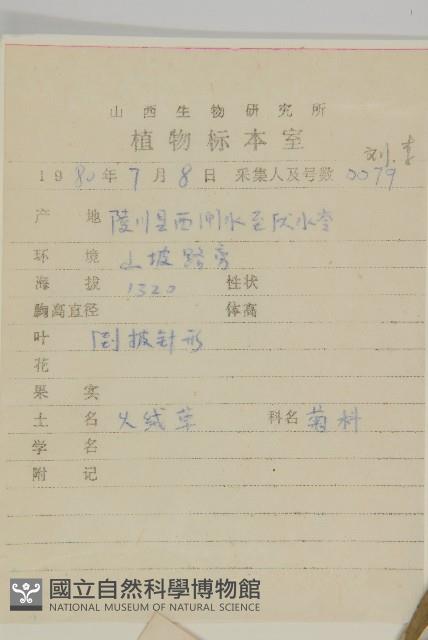 山西生物研究所
植物标本室
刘. 李
1980年7月8日 采集人及号数 0079
产地 陵川县西闸水至伏水
环境 山坡路旁
海拔 1320 性状
胸高直径 体高
叶 倒披针形
花
果实
土名 火绒草 科名 菊科
学名
附记
國立自然科學博物館
NATIONAL MUSEUM OF NATURAL SCIENCE